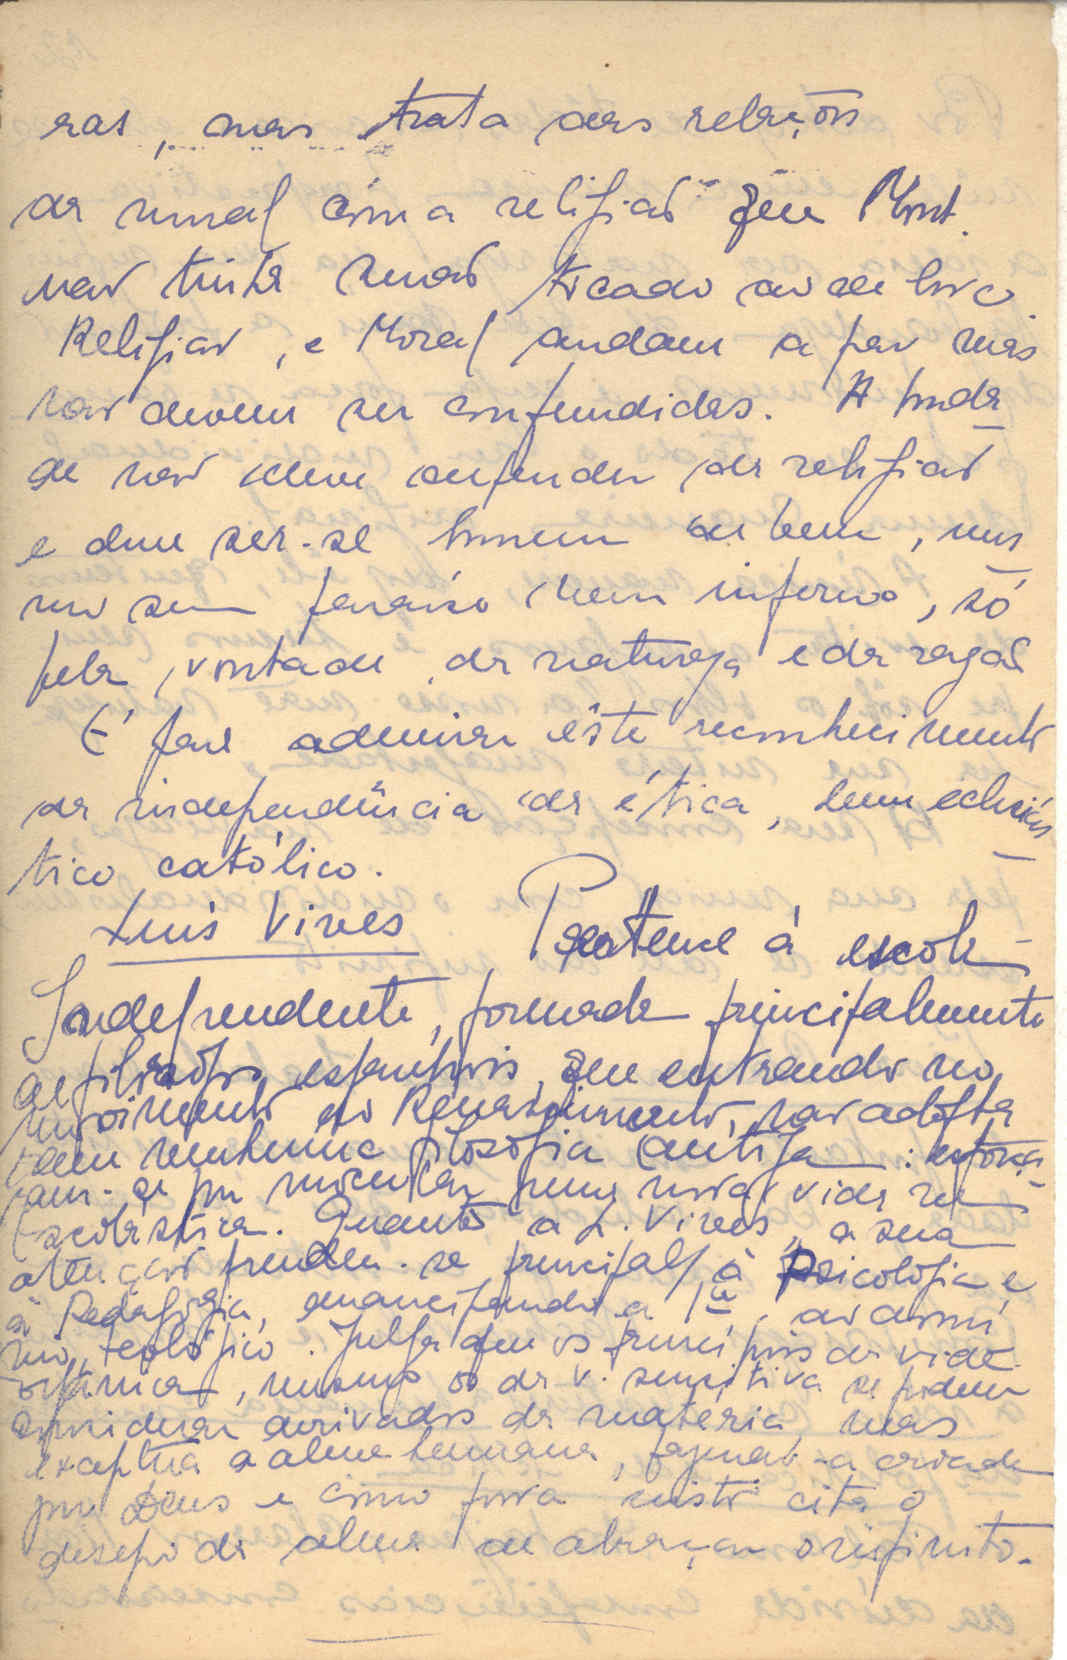 ras, mas trata das relações
da moral com a religião que Mont.
não tinha senão tocado ao de leve
Religião, e Moral andam a par mas
não devem ser confundidas. A bonda
de não deve depender da religião
e deve ser-se homem de bem, mes
mo sem paraíso nem inferno, só
pela vontade da natureza e da razão
É para admirar êste reconhecimento
da independência da ética, num eclesiás
tico católico.
Luis Vives Pertence à escola
Independente, formada principalmente
de filósofos espanhóis, que entrando no
movimento do Renascimento, não adopta
ram nenhuma filosofia antiga: esfora
ram-se por inocular uma nova vida na
Escolástica. Quanto a L. Vives, a sua
atenção prendeu-se principalᵉ à Psicologia e
à Pedagogia, emancipando a 1ª do domí
nio teológico. Julga que os princípios da vida
orgânica, mesmo os da v. sensitiva se podem
considerar derivados da matéria, mas
exceptua a alma humana, fazendo-a criada
por Deus e como prova disto cita o
desejo da alma de abraçar o infinito.